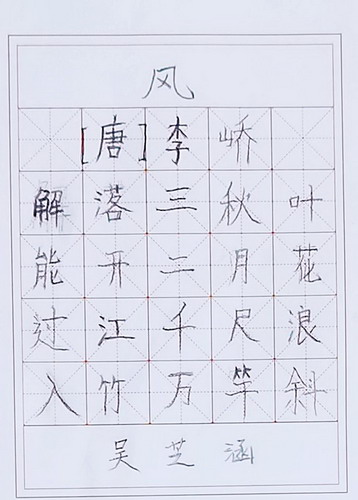 风
[唐]李峤
解落三秋叶
能开二月花
过江千尺浪
入竹万竿斜
吴芝涵